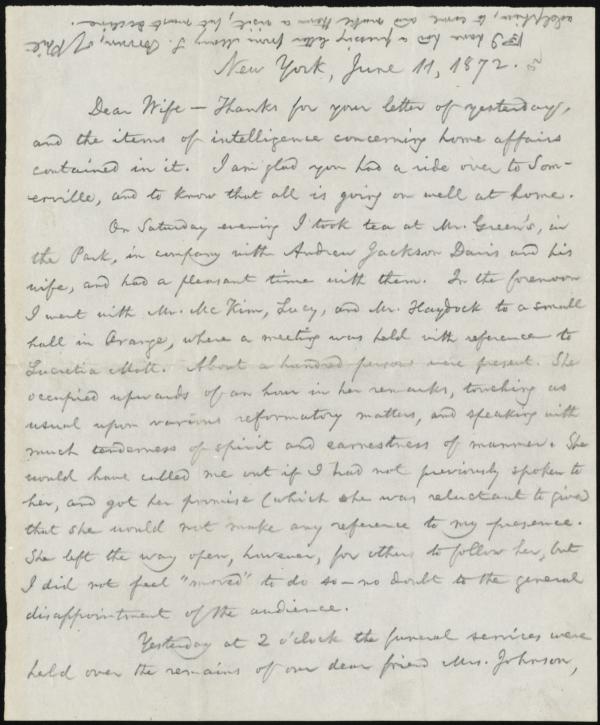 I have had a pressing letter from Mary L. Brown, of Phil-
adelphia, to come and make them a visit, but must decline.
New York, June 11, 1872.
Dear Wife — Thanks for your letter of yesterday,
and the items of intelligence concerning home affairs
contained in it. I am glad you had a ride over to Som-
erville, and to know that all is going on well at home.
On Saturday evening I took tea at Mr. Green's, in
the Park, in company with Andrew Jackson Davis and his
wife, and had a pleasant time with them. In the forenoon
I went with Mr. McKim, Lucy, and Mr. Haydock to a small
hall in Orange, where a meeting was held with reference to
Lucretia Mott. About a hundred persons were present. She
occupied upwards of an hour in her remarks, touching as
usual upon various reformatory matters, and speaking with
much tenderness of spirit and earnestness of manner. She
would have called me out if I had not previously spoken to
her, and got her promise (which she was reluctant to give)
that she would not make any reference to my presence.
She left the way open, however, for others to follow her, but
I did not feel "moved" to do so — no doubt to the general
disappointment of the audience.
Yesterday at 2 o'clock the funeral services were
held over the remains of our dear friend Mrs. Johnson,